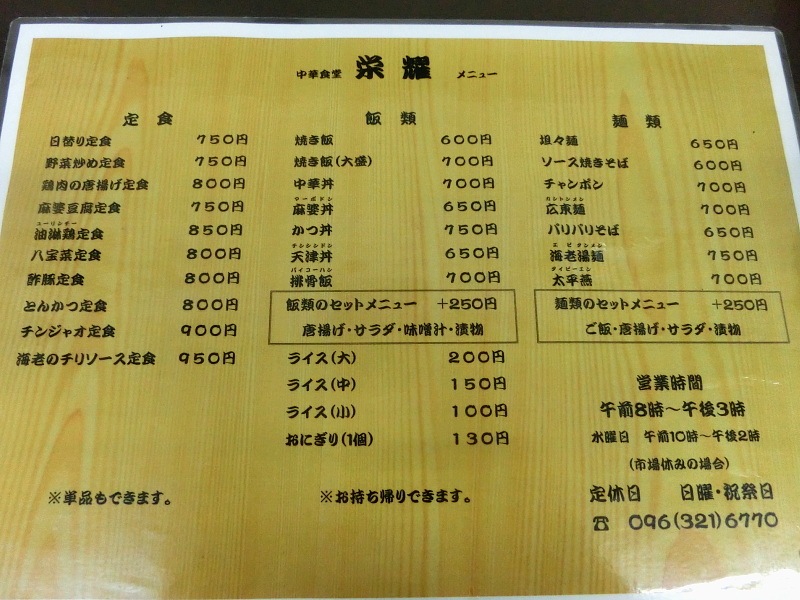 中華食堂 栄耀 メニュー
定食
日替り定食 750円
野菜炒め定食 750円
鶏肉の唐揚げ定食 800円
麻婆豆腐定食 750円
ユーリンチー
油淋鶏定食 850円
八宝菜定食 800円
酢豚定食 800円
とんかつ定食 800円
チンジャオ定食 900円
海老のチリソース定食 950円
※単品もできます。
飯類
焼き飯 600円
焼き飯(大盛) 700円
中華丼 700円
マーボドン
麻婆丼 650円
かつ丼 750円
テンシンドン
天津丼 650円
パイコーハン
排骨飯 700円
飯類のセットメニュー +250円
唐揚げ・サラダ・味噌汁・漬物
ライス(大) 200円
ライス(中) 150円
ライス(小) 100円
おにぎり(1個) 130円
※お持ち帰りできます。
麺類
坦々麺 650円
ソース焼きそば 600円
チャンポン 700円
カントンメン
広東麺 700円
パリパリそば 650円
エビタンメン
海老湯麺 750円
タイピーエン
太平燕 700円
麺類のセットメニュー +250円
ご飯・唐揚げ・サラダ・漬物
営業時間
午前8時～午後3時
水曜日 午前10時～午後2時
(市場休みの場合)
定休日 日曜・祝祭日
☎ 096(321)6770